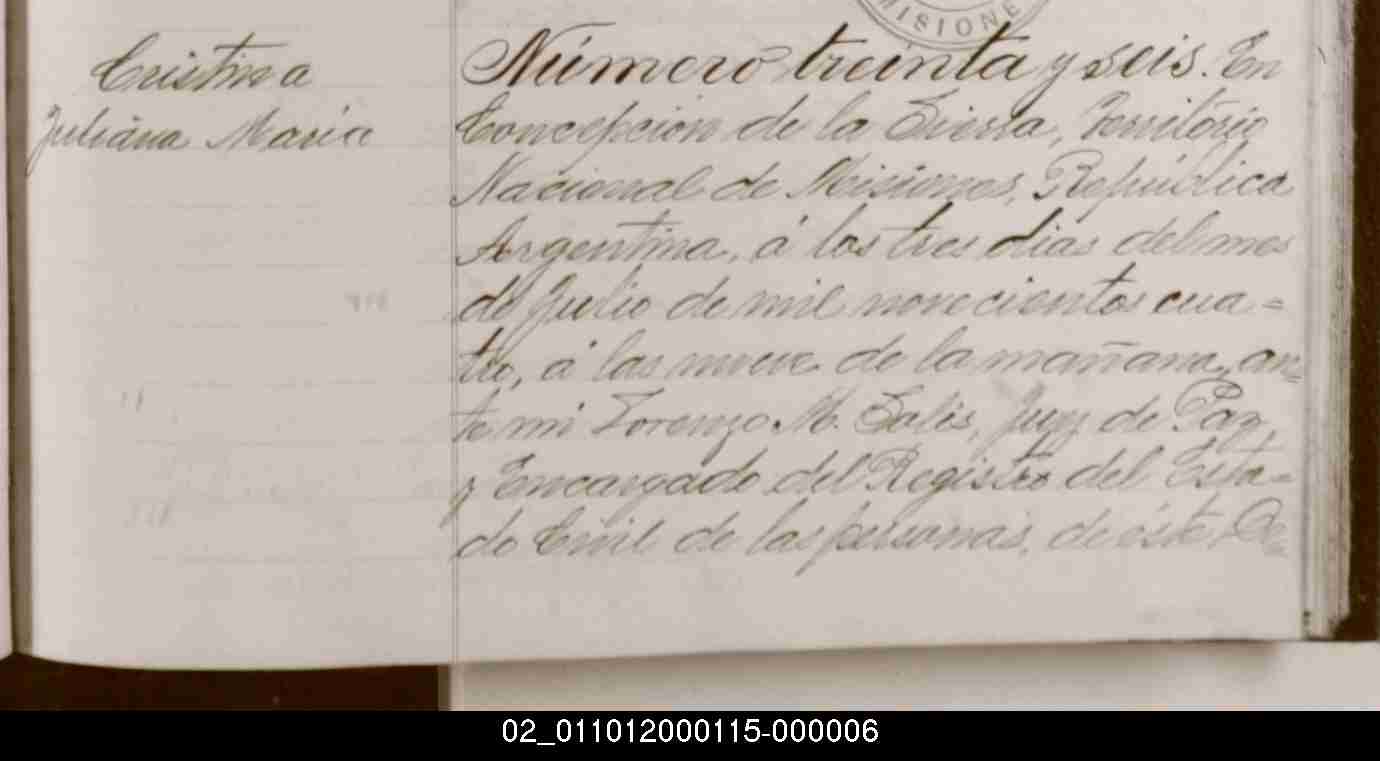 MISIONE
Cristina
Juliana Maria
Número treinta y seis. En
Concepción de la Sierra, Territorio
Nacional de Misiones, República
Argentina, á los tres dias del mes
de Julio de mil novecientos cua=
tro, á las nueve de la mañana, an=
te mi Lorenzo M. Salis, Juez de Paz
y Encargado del Registro del Esta=
do Civil de las personas, de éste
02_011012000115-000006